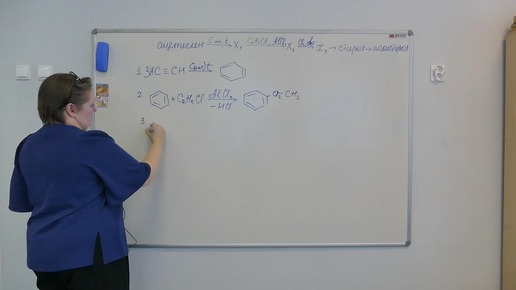 ацетилен C акт, t → X₁ C₂H₅Cl, AlCl₃ → X₂ → X₃ → стирол → полистирол
1. 3HC ≡ CH C(акт), t →
2. + C₂H₅Cl AlCl₃ → − HCl CH₂ − CH₃
3.